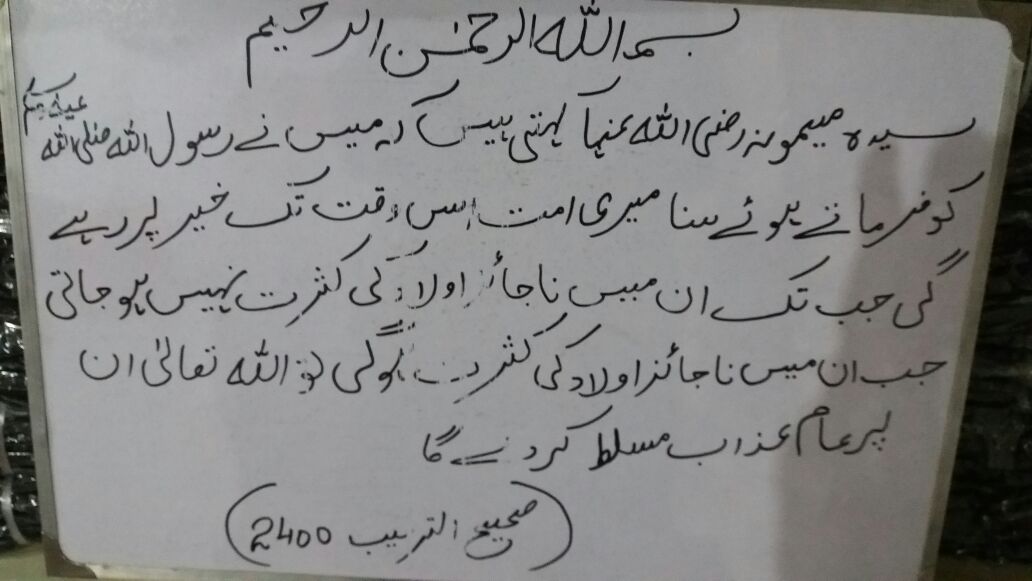 بسم اللہ الرحمٰن الرحیم
سیدہ میمونہ رضی اللہ عنہا کہتی ہیں کہ میں نے رسول اللہ صلی اللہ علیہ وسلم
کو فرماتے ہوئے سنا میری امت اس وقت تک خیر پر رہے
گی جب تک ان میں ناجائز اولاد کی کثرت نہیں ہو جاتی
جب ان میں ناجائز اولاد کی کثرت ہوگی تو اللہ تعالیٰ ان
پر عام عذاب مسلط کر دے گا
(صحیح الترہیب 2400)